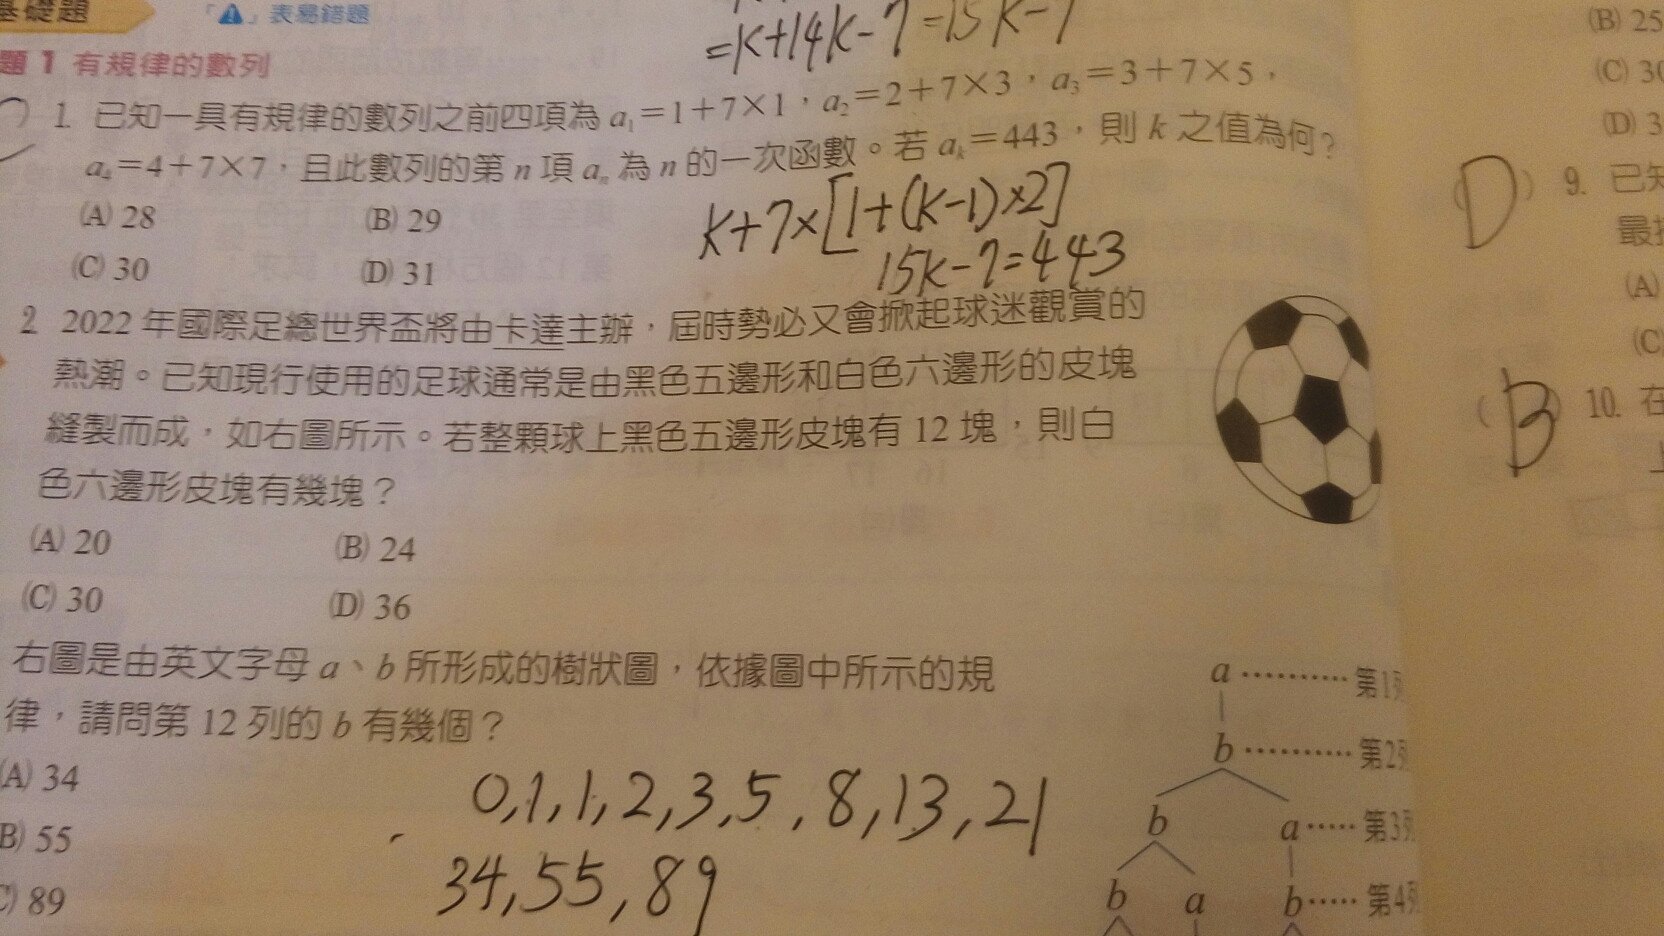 基礎題
「⚠」表易錯題
=k+14k-7=15k-7
題1 有規律的數列
1. 已知一具有規律的數列之前四項為 a₁=1+7×1,a₂=2+7×3,a₃=3+7×5,
a₄=4+7×7,且此數列的第 n 項 aₙ 為 n 的一次函數。若 aₖ=443,則 k 之值為何?
(A) 28
(B) 29
(C) 30
(D) 31
k+7×[1+(k-1)×2]
15k-7=443
2 2022 年國際足總世界盃將由卡達主辦,屆時勢必又會掀起球迷觀賞的
熱潮。已知現行使用的足球通常是由黑色五邊形和白色六邊形的皮塊
縫製而成,如右圖所示。若整顆球上黑色五邊形皮塊有 12 塊,則白
色六邊形皮塊有幾塊?
(A) 20
(B) 24
(C) 30
(D) 36
右圖是由英文字母 a、b 所形成的樹狀圖,依據圖中所示的規
律,請問第 12 列的 b 有幾個?
(A) 34
B) 55
C) 89
0,1,1,2,3,5,8,13,21
34,55,89
a ………… 第1列
b ………… 第2列
b a …… 第3列
b a b …… 第4列
(B) 25
(C) 30
(D) 3
(D) 9. 已知
(A)
(C)
(B) 10. 在